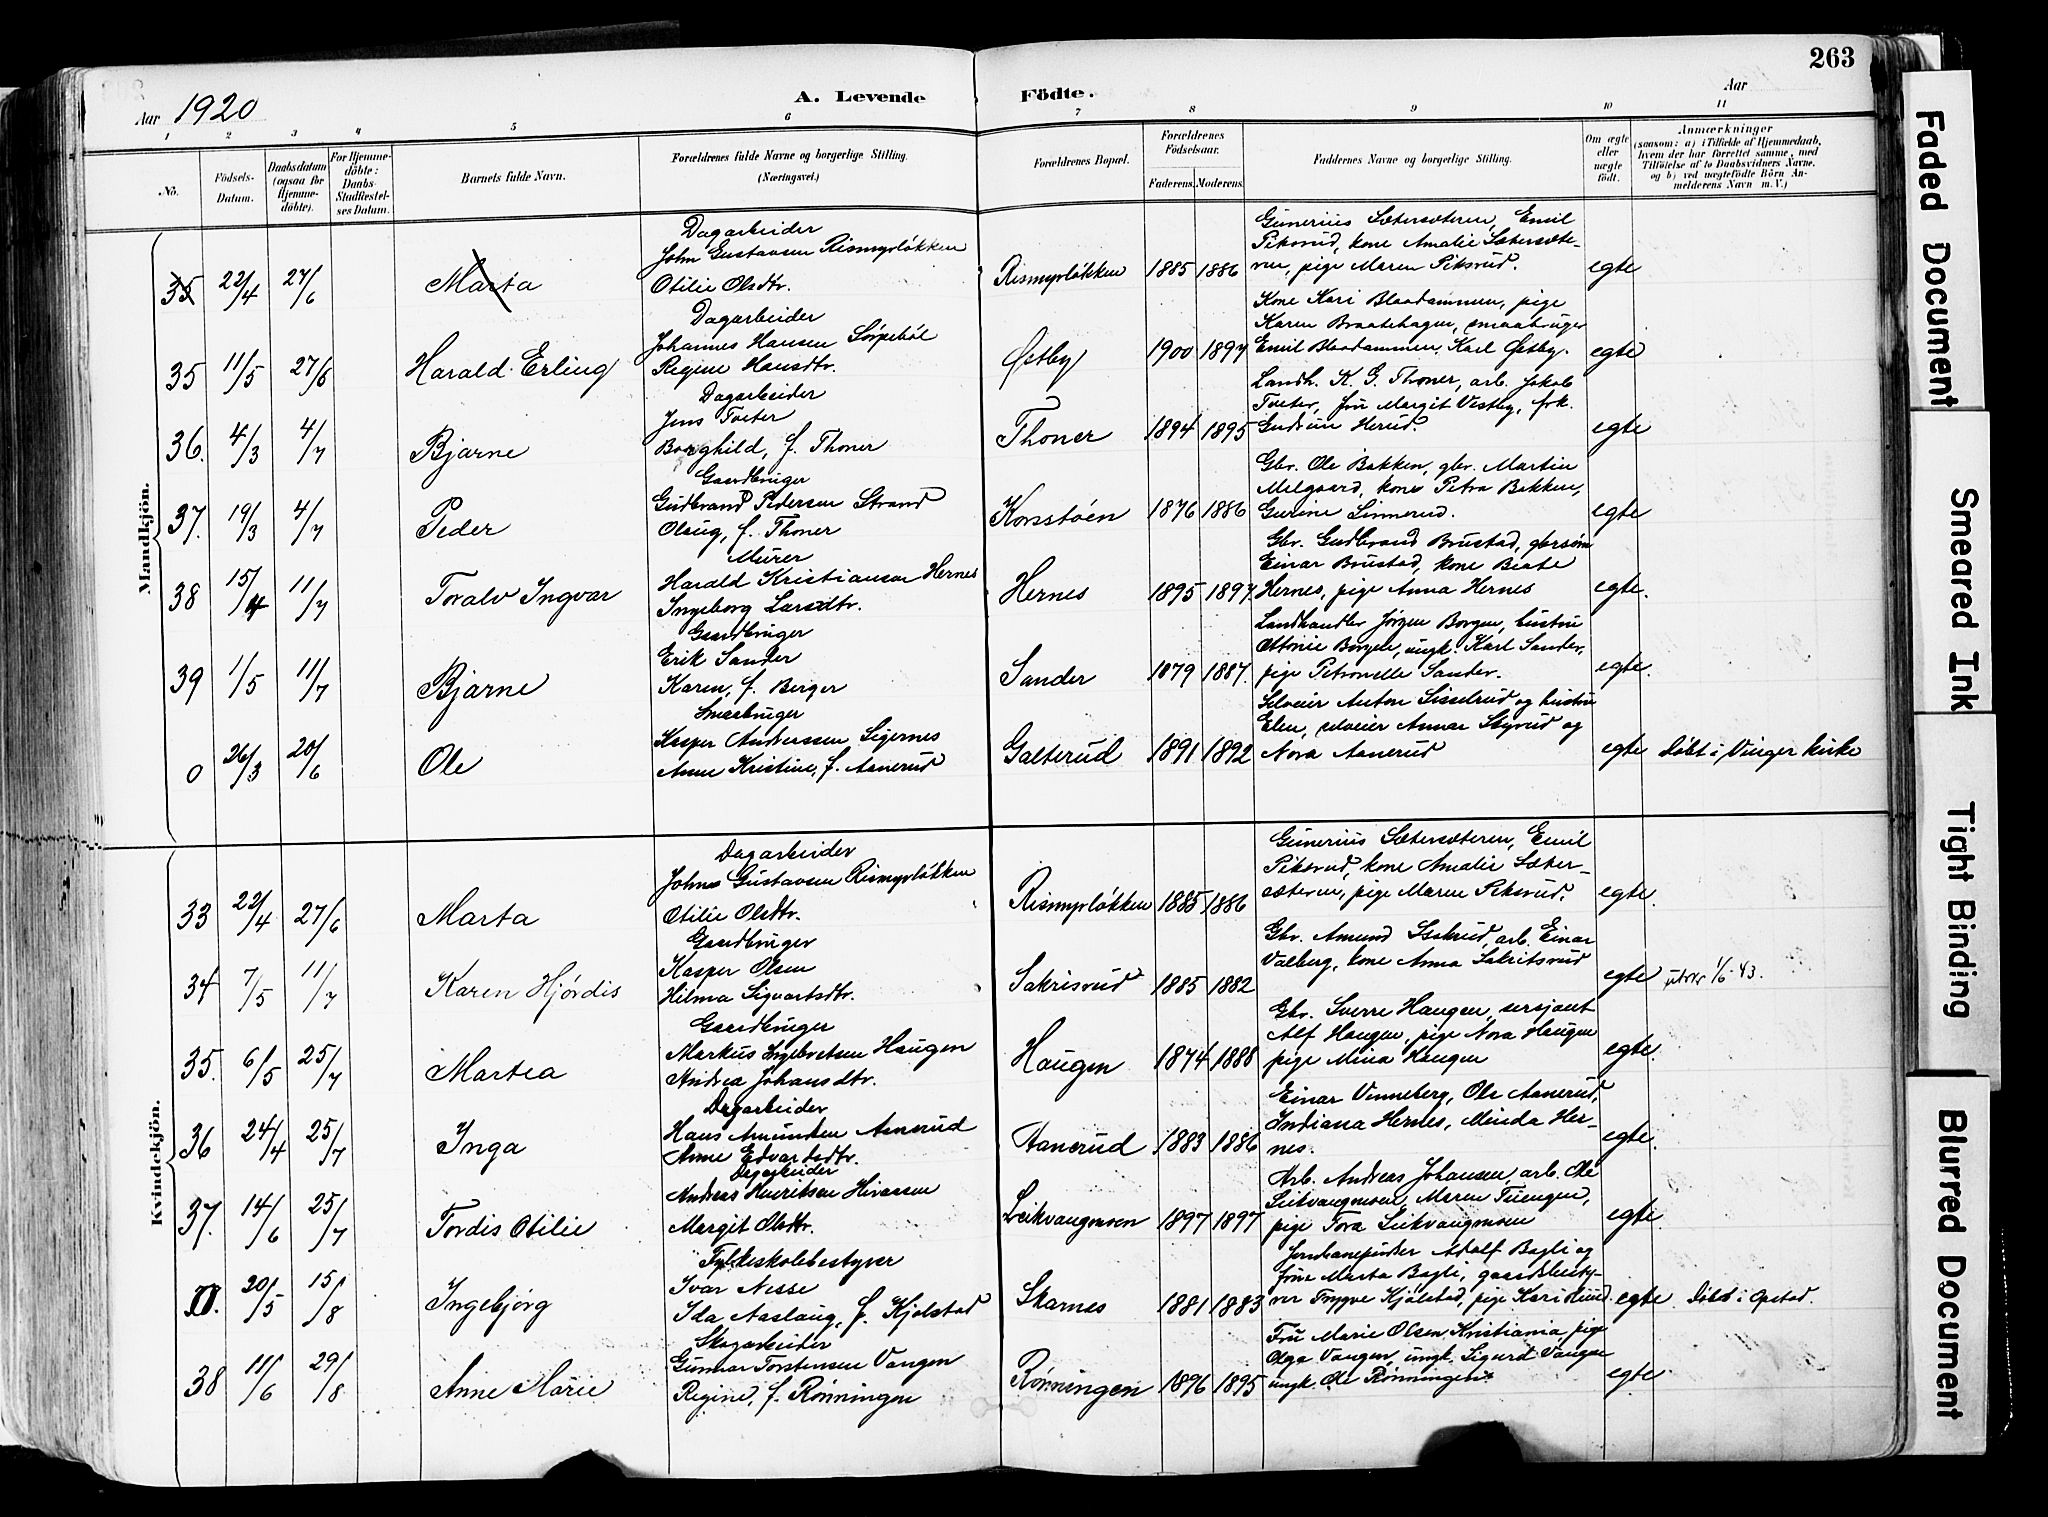 263
Aar 1920
A. Levende Födte.
Aar
1 2 3 4 5 6 7 8 9 10 11
No.
Födsels-Datum.
Daabsdatum (ogsaa for Hjemme-döbte).
For Hjemme-döbte: Daabs-Stadfæstel-ses Datum.
Barnets fulde Navn.
Forældrenes fulde Navne og borgerlige Stilling. (Næringsvei.)
Forældrenes Bopæl.
Forældrenes Födselsaar.
Faderens. Moderens.
Faddernes Navne og borgerlige Stilling.
Om ægte eller uægte födt.
Anmærkninger
(saasom: a) i Tilfælde af Hjemmedaab,
hvem der har forrettet samme, med
Tilföielse af to Daabsvidners Navne.
og b) ved uægtefödte Börn An-
melderens Navn m. V.)
Mandkjön.
35 22/4 27/6 Marta
Dagarbeider
John Gustavsen Rismyrløkken
Otilie Olsdtr.
Rismyrløkken 1885 1886
Gunerius Sætersæteren, Emil
Piksrud, kone Amalie Sætersæte-
ren, pige Maren Piksrud.
egte
35 11/5 27/6 Harald Erling
Dagarbeider
Johannes Hansen Sörpebøl
Regine Hansdtr.
Østby 1900 1897
Kone Kari Blaadammen, pige
Karen Braatehagen, smaabruger
Emil Blaadammen, Karl Østby.
egte
36. 4/3 4/7 Bjarne
Dagarbeider
Jens Tveter
Borghild, f. Thoner
Thoner 1894 1895
Landh. K. G. Thoner, arb. Jakob
Tveter, fru Margit Vestby, frk.
Gudrun Herud.
egte
37. 19/3 4/7 Peder
Gaardbruger
Gudbrand Pedersen Strand
Olaug, f. Thoner
Korsstøen 1876 1886
Gbr. Ole Bakken, gbr. Martin
Melgaard, kone Petra Bakken,
Gurine Linnerud.
egte
38 15/4 11/7 Toralv Ingvar
Murer
Harald Kristiansen Hernes
Ingeborg Larsdtr.
Hernes 1895 1897.
Gbr. Gudbrand Brustad, gbrsøn
Einar Brustad, kone Beate
Hernes, pige Anna Hernes
egte.
39 1/5 11/7 Bjarne
Gaardbruger
Erik Sander
Karen, f. Berger
Sander 1879 1887.
Landhandler Jørgen Borgen, hustru
Ottonie Borgen, ungk. Karl Sander,
pige Petronelle Sander.
egte.
0 26/3 20/6 Ole
Smaabruger
Kasper Anderssen Sigernes
Anne Kristine, f. Aanerud
Galterud 1891 1892
Selveier Anton Sisselrud og hustru
Elen, selveier Annar Skyrud og
Nora Aanerud
egte Døbt i Vinger kirke
Kvindekjön.
33 22/4 27/6 Marta
Dagarbeider
Johns Gustavsen Rismyrløkken
Otilie Olsdtr.
Rismyrløkken 1885 1886
Gunerius Sætersæteren, Emil
Piksrud, kone Amalie Sæter-
sæteren, pige Maren Piksrud.
egte.
34 7/5 11/7 Karen Hjørdis
Gaardbruger
Kasper Olsen
Hilma Sigvartsdtr.
Sakrisrud 1885 1882
Gbr. Amund Skakrud, arb. Einar
Valberg, kone Anna Sakritsrud
egte utskr 1/6-43.
35. 6/5 25/7 Martea
Gaardbruger
Markus Ingebretsen Haugen
Andrea Johansdtr.
Haugen 1874 1888
Gbr. Sverre Haugen, sersjant
Alf Haugen, pige Nora Haugen
pige Mina Haugen
egte.
36 24/4 25/7 Inga
Dagarbeider
Hans Amundsen Aanerud
Anne Edvardsdtr.
Aanerud 1883 1886
Einar Vinneberg, Ole Aanerud,
Indiana Hernes, Minda Her-
nes.
egte.
37. 14/6 25/7 Tordis Otilie
Dagarbeider
Andreas Henriksen
Margit Olsdtr.
Leikvangmoen 1897 1897
Arb. Andreas Johansen, arb. Ole
Leikvangmoen, Maren Tuengen,
pige Tora Leikvangmoen
egte.
20/5 15/8 Ingebjørg
Fylkeskolebestyrer
Ivar Nesse
Ida Aaslaug, f. Kjølstad
Skarnes 1881 1883
Adolf Bagli og
frue Marta Bagli, gaardsbesty-
rer Trygve Kjølstad, pige Kari
egte. Døbt i Opstad.
38 11/6 29/8 Anne Marie
Skogarbeider
Gunnar Torstensen Vangen
Regine, f. Rønningen
Rønningen 1896 1895
Fru Marie Olsen Kristiania, pige
Olga Vangen, ungk. Sigurd Vangen
ungk. Ole Rønningen.
egte
Faded Document
Smeared Ink
Tight Binding
Blurred Document